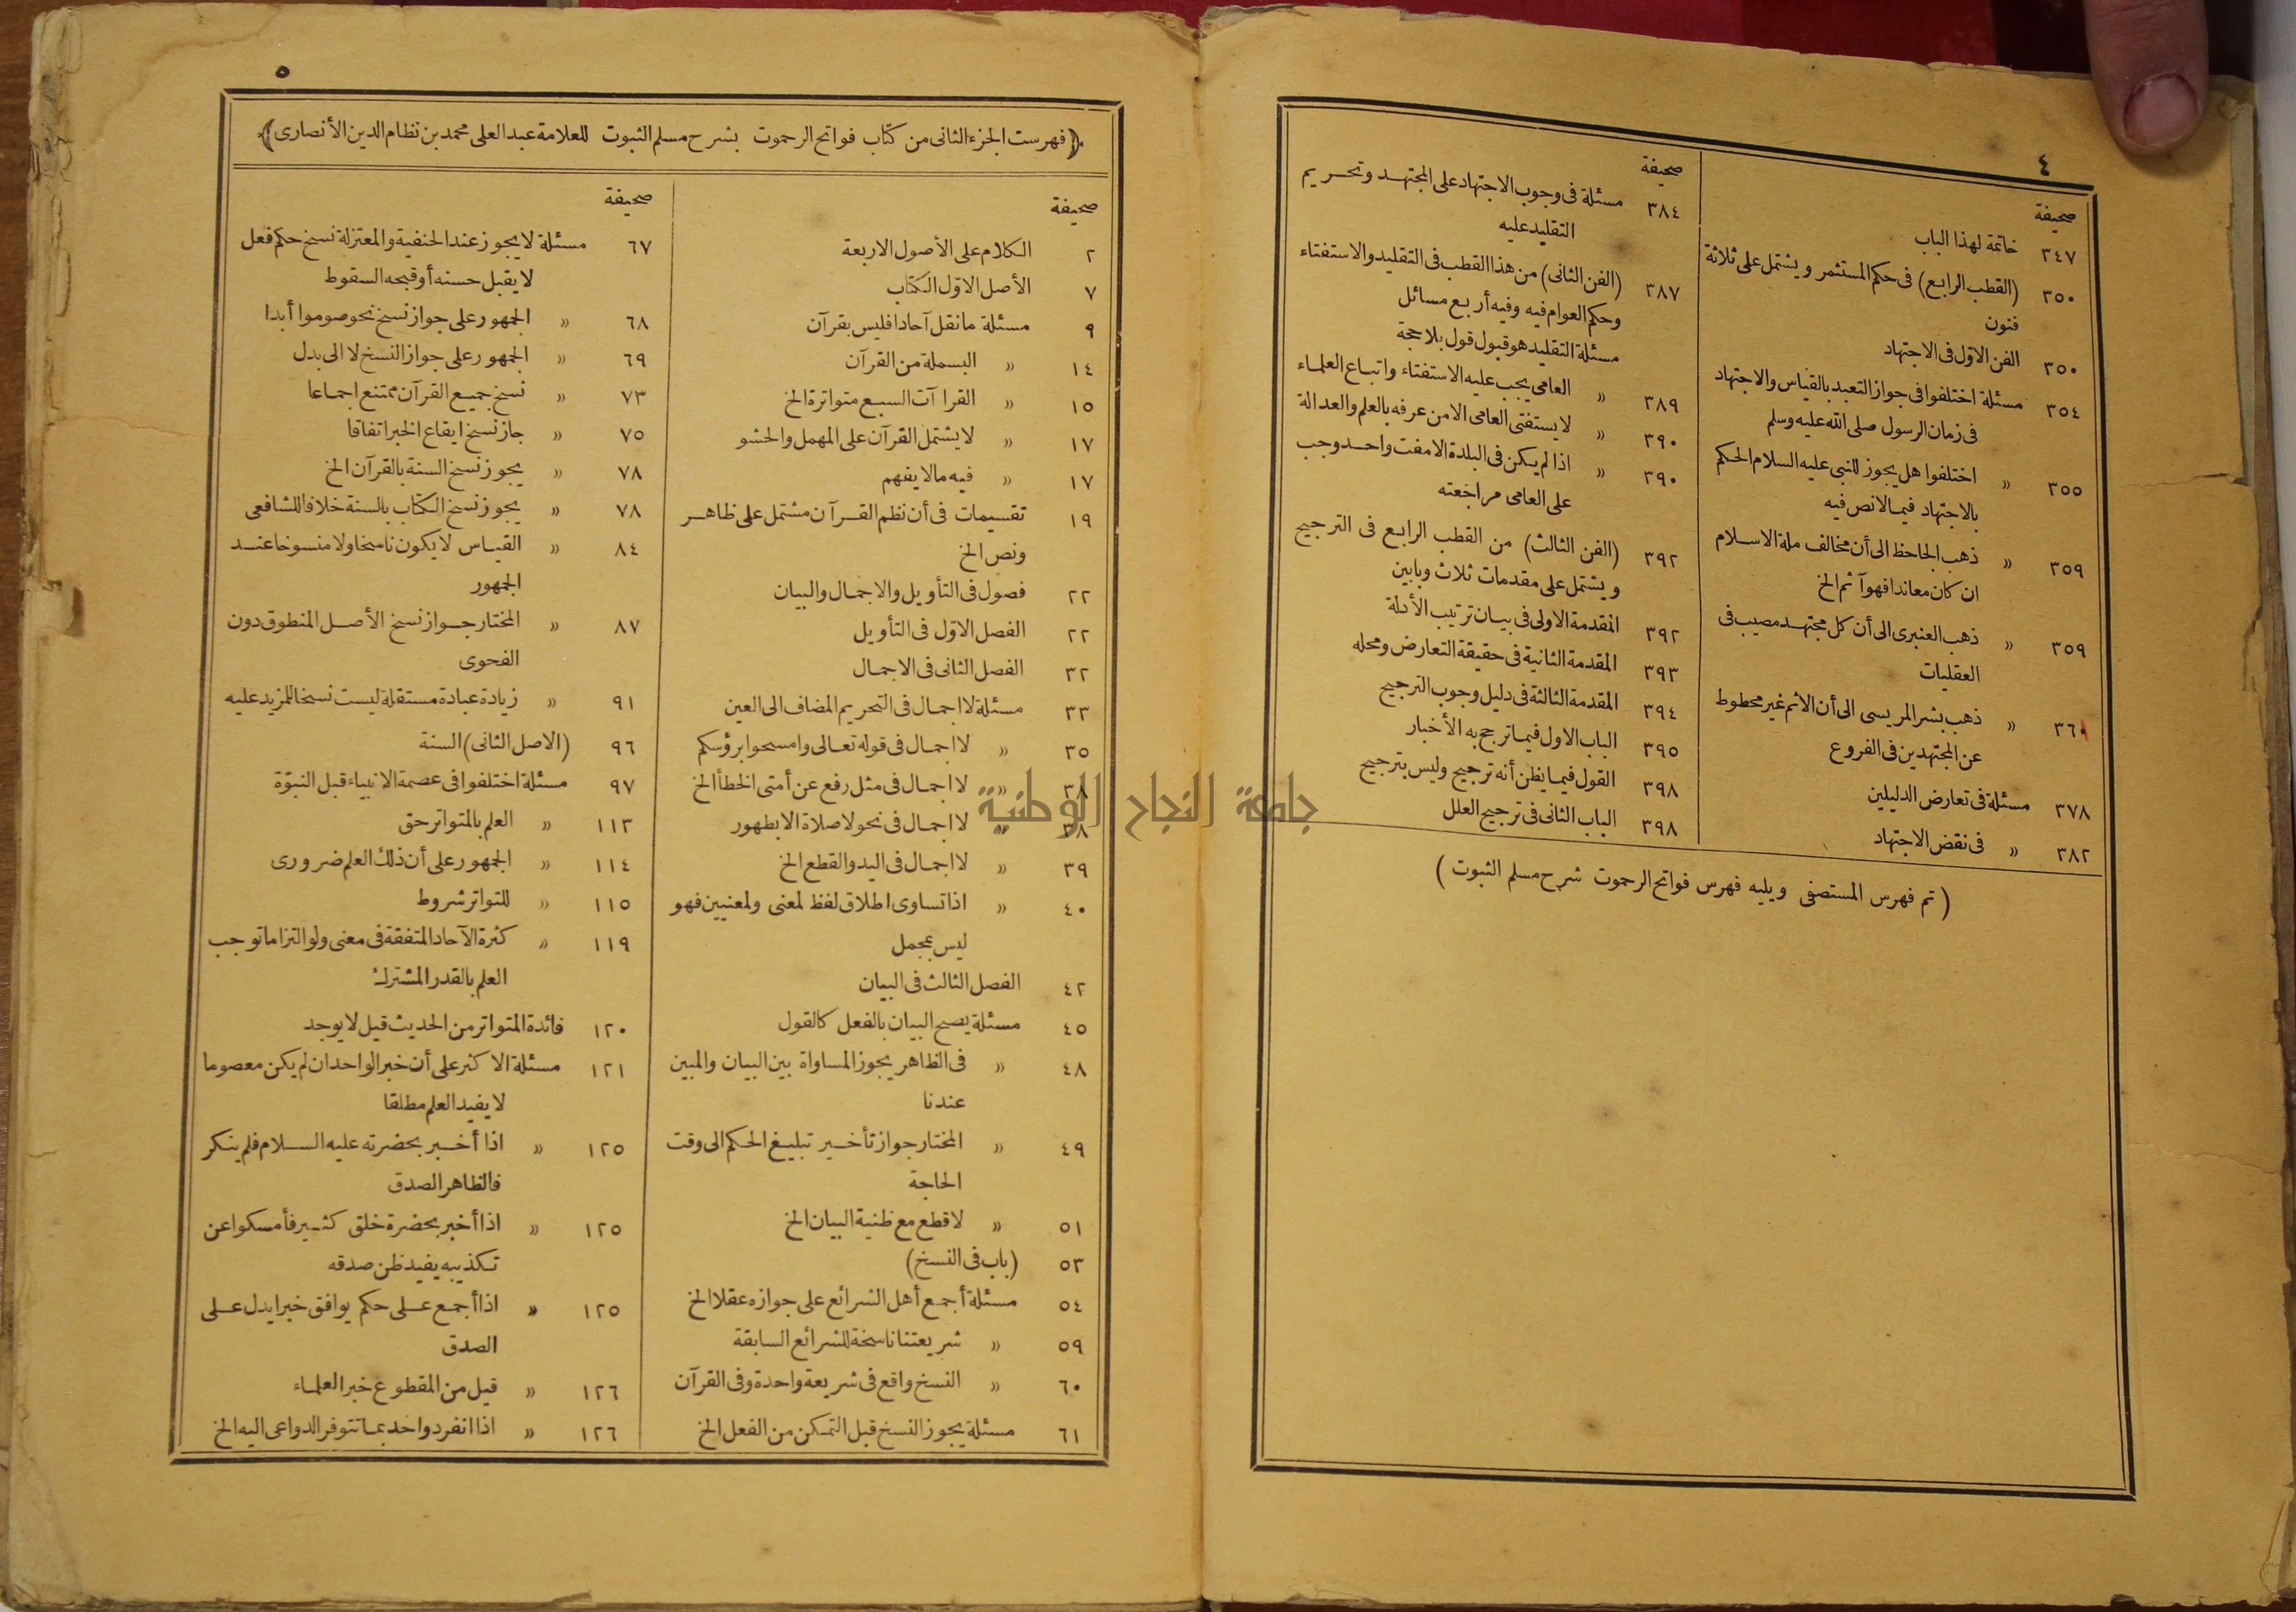 ٤
صحيفة
٣٤٧ خاتمة لهذا الباب
٣٥٠ (القطب الرابع) فى حكم المستثمر ويشتمل على ثلاثة
فنون
٣٥٠ الفن الاوّل فى الاجتهاد
٣٥٤ مسئلة اختلفوا فى جواز التعبد بالقياس والاجتهاد
فى زمان الرسول صلى الله عليه وسلم
٣٥٥ » اختلفوا هل يجوز للنبى عليه السلام الحكم
بالاجتهاد فيما لانص فيه
٣٥٩ » ذهب الجاحظ الى أن مخالف ملة الاسلام
ان كان معاندا فهو آثم الخ
٣٥٩ » ذهب العنبرى الى أن كل مجتهد مصيب فى
العقليات
٣٦٠ » ذهب بشر المريسى الى أن الاثم غير محطوط
عن المجتهدين فى الفروع
٣٧٨ مسئلة فى تعارض الدليلين
٣٨٢ » فى نقض الاجتهاد
صحيفة
٣٨٤ مسئلة فى وجوب الاجتهاد على المجتهد وتحريم
التقليد عليه
٣٨٧ (الفن الثانى) من هذا القطب فى التقليد والاستفتاء
وحكم العوام فيه وفيه أربع مسائل
مسئلة التقليد هو قبول قول بلا حجة
٣٨٩ » العامى يجب عليه الاستفتاء واتباع العلماء
٣٩٠ » لا يستفتى العامى الا من عرفه بالعلم والعدالة
٣٩٠ » اذا لم يكن فى البلدة الا مفت واحد وجب
على العامى مراجعته
٣٩٢ (الفن الثالث) من القطب الرابع فى الترجيح
ويشتمل على مقدمات ثلاث وبابين
٣٩٢ المقدمة الاولى فى بيان ترتيب الأدلة
٣٩٣ المقدمة الثانية فى حقيقة التعارض ومحله
٣٩٤ المقدمة الثالثة فى دليل وجوب الترجيح
٣٩٥ الباب الاول فيما ترجح به الأخبار
٣٩٨ القول فيما يظن أنه ترجيح وليس بترجيح
٣٩٨ الباب الثانى فى ترجيح العلل
(تم فهرس المستصفى ويليه فهرس فواتح الرحموت شرح مسلم الثبوت)
٥
﴿فهرست الجزء الثانى من كتاب فواتح الرحموت بشرح مسلم الثبوت للعلامة عبد العلى محمد بن نظام الدين الأنصارى﴾
صحيفة
٢ الكلام على الأصول الاربعة
٧ الأصل الاوّل الكتاب
٩ مسئلة ما نقل آحادا فليس بقرآن
١٤ » البسملة من القرآن
١٥ » القراآت السبع متواترة الخ
١٧ » لا يشتمل القرآن على المهمل والحشو
١٧ » فيه مالا يفهم
١٩ تقسيمات فى أن نظم القرآن مشتمل على ظاهر
ونص الخ
٢٢ فصول فى التأويل والاجمال والبيان
٢٢ الفصل الاوّل فى التأويل
٣٢ الفصل الثانى فى الاجمال
٣٣ مسئلة لا اجمال فى التحريم المضاف الى العين
٣٥ » لا اجمال فى قوله تعالى وامسحوا برؤسكم
٣٨ » لا اجمال فى مثل رفع عن أمتى الخطأ الخ
٣٨ » لا اجمال فى نحو لا صلاة الا بطهور
٣٩ » لا اجمال فى اليد والقطع الخ
٤٠ » اذا تساوى اطلاق لفظ لمعنى ولمعنيين فهو
ليس بمجمل
٤٢ الفصل الثالث فى البيان
٤٥ مسئلة يصح البيان بالفعل كالقول
٤٨ » فى الظاهر يجوز المساواة بين البيان والمبين
عندنا
٤٩ » المختار جواز تأخير تبليغ الحكم الى وقت
الحاجة
٥١ » لا قطع مع ظنية البيان الخ
٥٣ (باب فى النسخ)
٥٤ مسئلة أجمع أهل الشرائع على جوازه عقلا الخ
٥٩ » شريعتنا ناسخة للشرائع السابقة
٦٠ » النسخ واقع فى شريعة واحدة وفى القرآن
٦١ مسئلة يجوز النسخ قبل التمكن من الفعل الخ
صحيفة
٦٧ مسئلة لا يجوز عند الحنفية والمعتزلة نسخ حكم فعل
لا يقبل حسنه أو قبحه السقوط
٦٨ » الجمهور على جواز نسخ نحو صوموا أبدا
٦٩ » الجمهور على جواز النسخ لا الى بدل
٧٣ » نسخ جميع القرآن ممتنع اجماعا
٧٥ » جاز نسخ ايقاع الخبر اتفاقا
٧٨ » يجوز نسخ السنة بالقرآن الخ
٧٨ » يجوز نسخ الكتاب بالسنة خلافا للشافعى
٨٤ » القياس لا يكون ناسخا ولا منسوخا عند
الجمهور
٨٧ » المختار جواز نسخ الأصل المنطوق دون
الفحوى
٩١ » زيادة عبادة مستقلة ليست نسخا للمزيد عليه
٩٦ (الاصل الثانى) السنة
٩٧ مسئلة اختلفوا فى عصمة الانبياء قبل النبوّة
١١٣ » العلم بالمتواتر حق
١١٤ » الجمهور على أن ذلك العلم ضرورى
١١٥ » للتواتر شروط
١١٩ » كثرة الآحاد المتفقة فى معنى ولو التزاما توجب
العلم بالقدر المشترك
١٢٠ فائدة المتواتر من الحديث قيل لا يوجد
١٢١ مسئلة الاكثر على أن خبر الواحد ان لم يكن معصوما
لا يفيد العلم مطلقا
١٢٥ » اذا أخبر بحضرته عليه السلام فلم ينكر
فالظاهر الصدق
١٢٥ » اذا أخبر بحضرة خلق كثير فأمسكوا عن
تكذيبه يفيد ظن صدقه
١٢٥ » اذا أجمع على حكم يوافق خبرا يدل على
الصدق
١٢٦ » قيل من المقطوع خبر العلماء
١٢٦ » اذا انفرد واحد بما تتوفر الدواعى اليه الخ
جامعة النجاح الوطنية